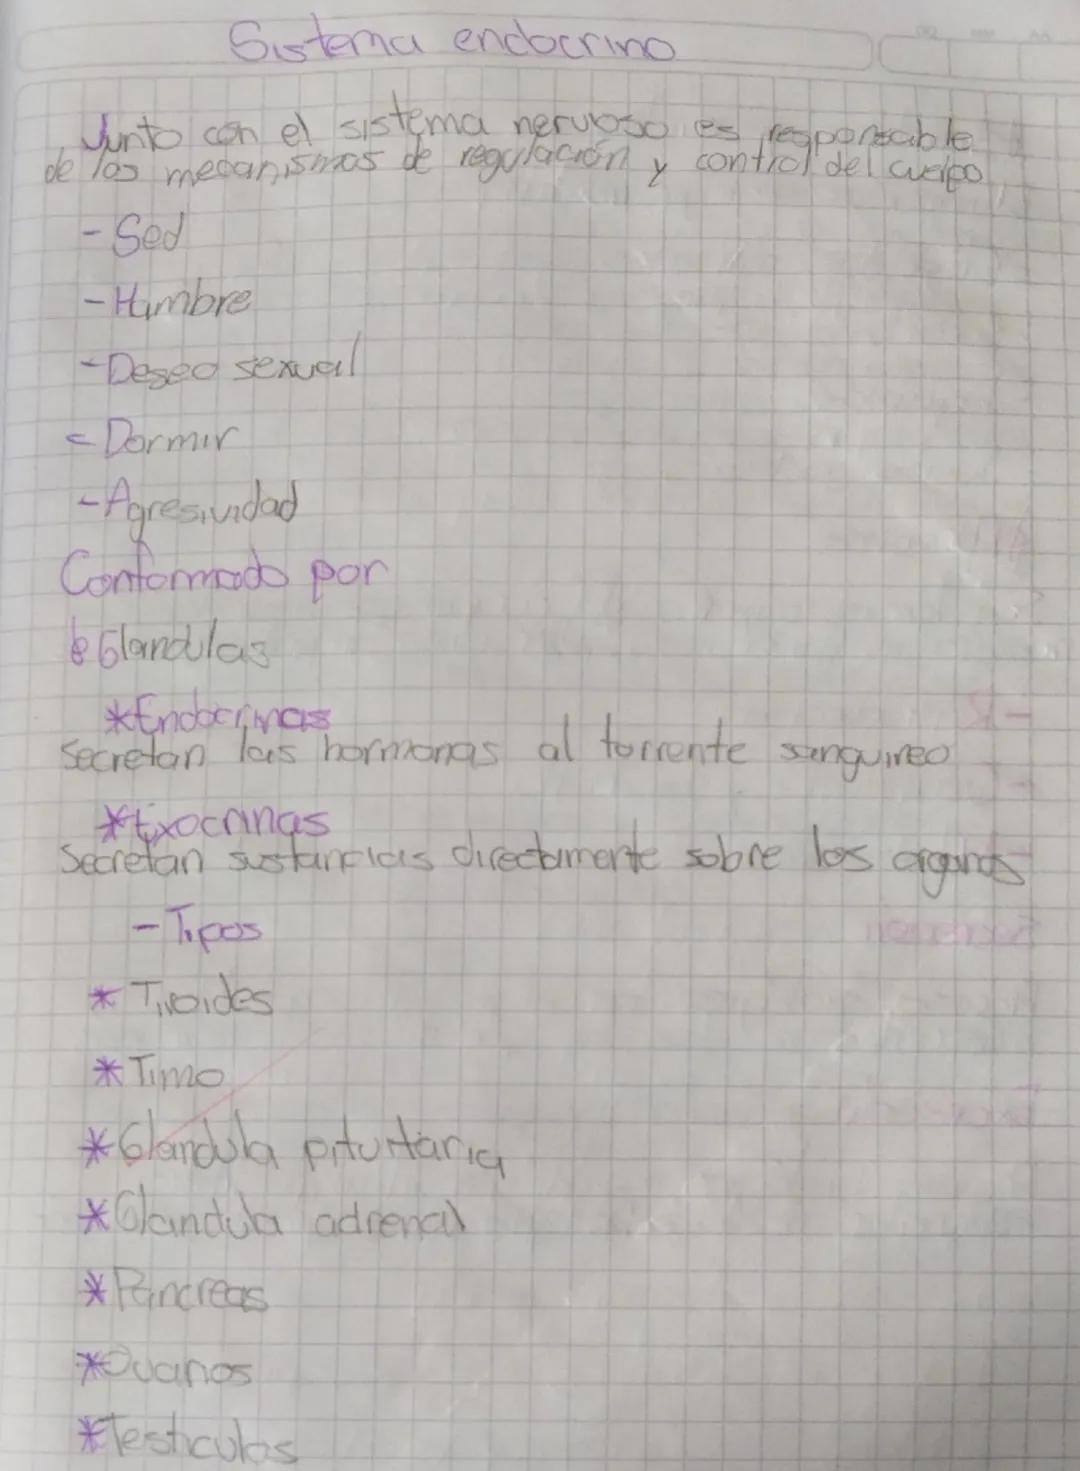 Sistema endocrino
Junto con el sistema nervioso es responsable
de los mecanismos de regulación y control del cuerpo
- Sed
- Hambre
- Deseo sexual
- Dormir
- Agresividad
Conformado por
Glandulas
*Endocrinas
Secretan las hormonas al torrente sanguineo
*Exocrinas
Secretan sustancias directamente sobre los organos
- Tipos
* Tiroides
* Timo
* Glandula pituitaria
* Glandula adrenal
* Pancreas
* Ovarios
* Testiculos